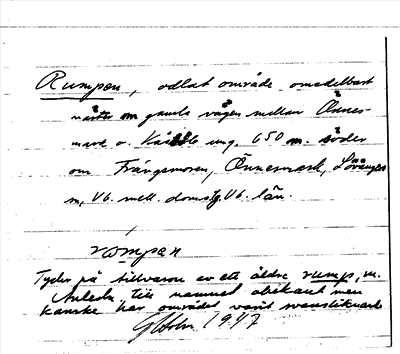 Rumpen, odlat område omedelbart
väster om gamla vägen mellan Önnes-
mark o. ung. 650 m. söder
om Trångsmoren, Önnesmark, Lövångers
sn, Vb. mell. doms. Vb. län.
rompan
Tyder på tillvaron av ett äldre rump, m.
Anledn. till namnet obekant men
kanske har området varit svansliknande
Holm 1947